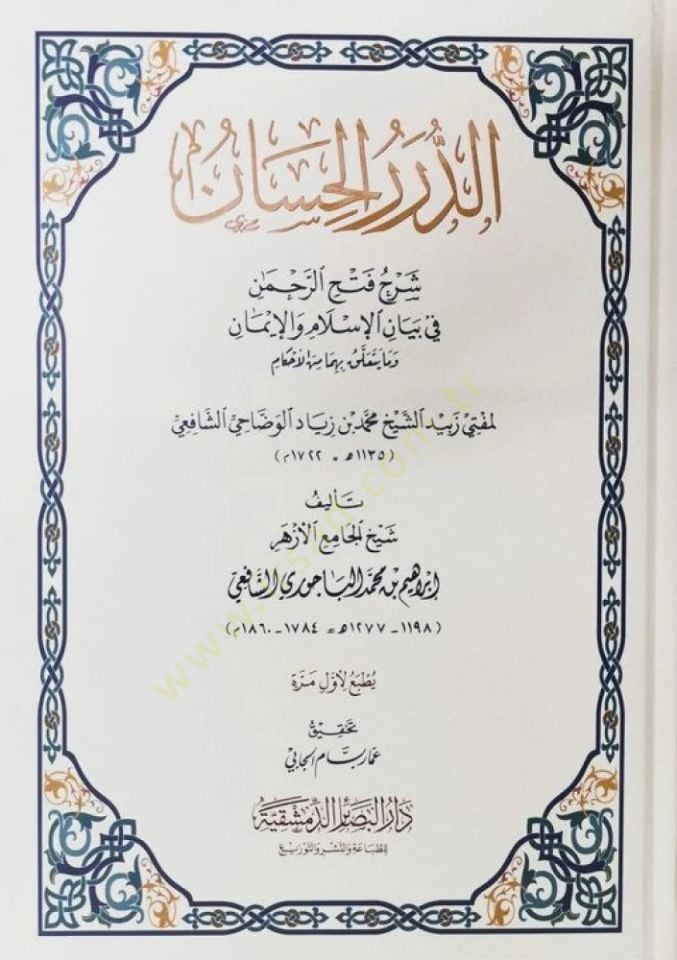 الدُّرَرُ الْحِسَانُ
شَرْحُ فَتْحِ الرَّحْمٰنِ
فِي بَيَانِ الْإِسْلَامِ وَالْإِيمَانِ
وَمَا يَتَعَلَّقُ بِهِمَا مِنَ الْأَحْكَامِ
لمفتي زبيد الشيخ محمد بن زياد الوضاحي الشافعي
(١١٣٥هـ = ١٧٢٢م)
تأليف
شيخ الجامع الأزهر
إبراهيم بن محمد الباجوري الشافعي
(١١٩٨ - ١٢٧٧هـ = ١٧٨٤ - ١٨٦٠م)
يُطبَعُ لأوَّلِ مَرَّة
تحقيق
عمار بسام الجابي
دار البصائر الدمشقية
للطباعة والنشر والتوزيع